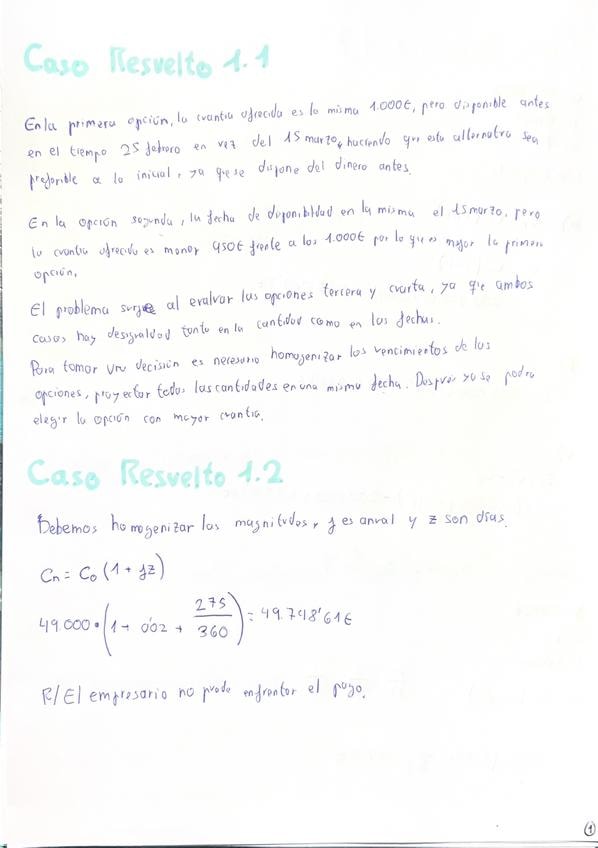 Caso Resuelto 1.1
En la primera opción, la cuantia ofrecida es la misma 1.000€, pero disponible antes
en el tiempo 25 febrero en vez del 15 marzo, haciendo que esta alternativa sea
preferible a la inicial, ya que se dispone del dinero antes.
En la opción segunda, la fecha de disponibilidad en la misma el 15 marzo, pero
la cuantia ofrecida es menor 950€ frente a los 1.000€ por lo que es mejor la primera
opción.
El problema surge al evaluar las opciones tercera y cuarta, ya que ambos
casos hay desigualdad tanto en la cantidad como en las fechas.
Para tomar una decisión es necesario homogenizar los vencimientos de las
opciones, proyectar todas las cantidades en una misma fecha. Después ya se podra
elegir la opción con mayor cuantia.
Caso Resuelto 1.2
Debemos homogenizar las magnitudes, j es anual y z son días.
Cn = C0 (1 + jz)
49.000 • (1 + 0'02 + 275/360) = 49.748'61€
R/ El empresario no puede enfrentar el pago.
1